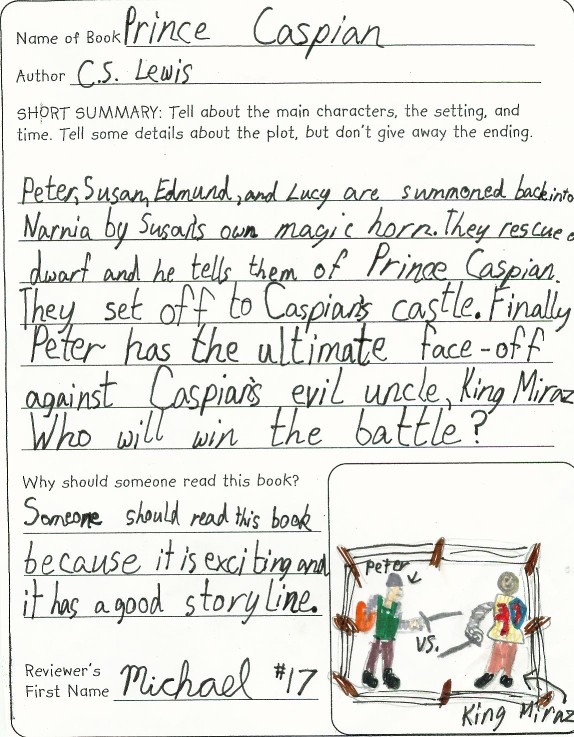 Name of Book Prince Caspian
Author C.S. Lewis
SHORT SUMMARY: Tell about the main characters, the setting, and
time. Tell some details about the plot, but don't give away the ending.
Peter, Susan, Edmund, and Lucy are summoned back into
Narnia by Susan's own magic horn. They rescue a
dwarf and he tells them of Prince Caspian.
They set off to Caspian's castle. Finally
Peter has the ultimate face-off
against Caspian's evil uncle, King Miraz
Who will win the battle?
Why should someone read this book?
Someone should read this book
because it is exciting and
it has a good story line.
Reviewer's
First Name Michael #17
Peter
VS.
King Miraz